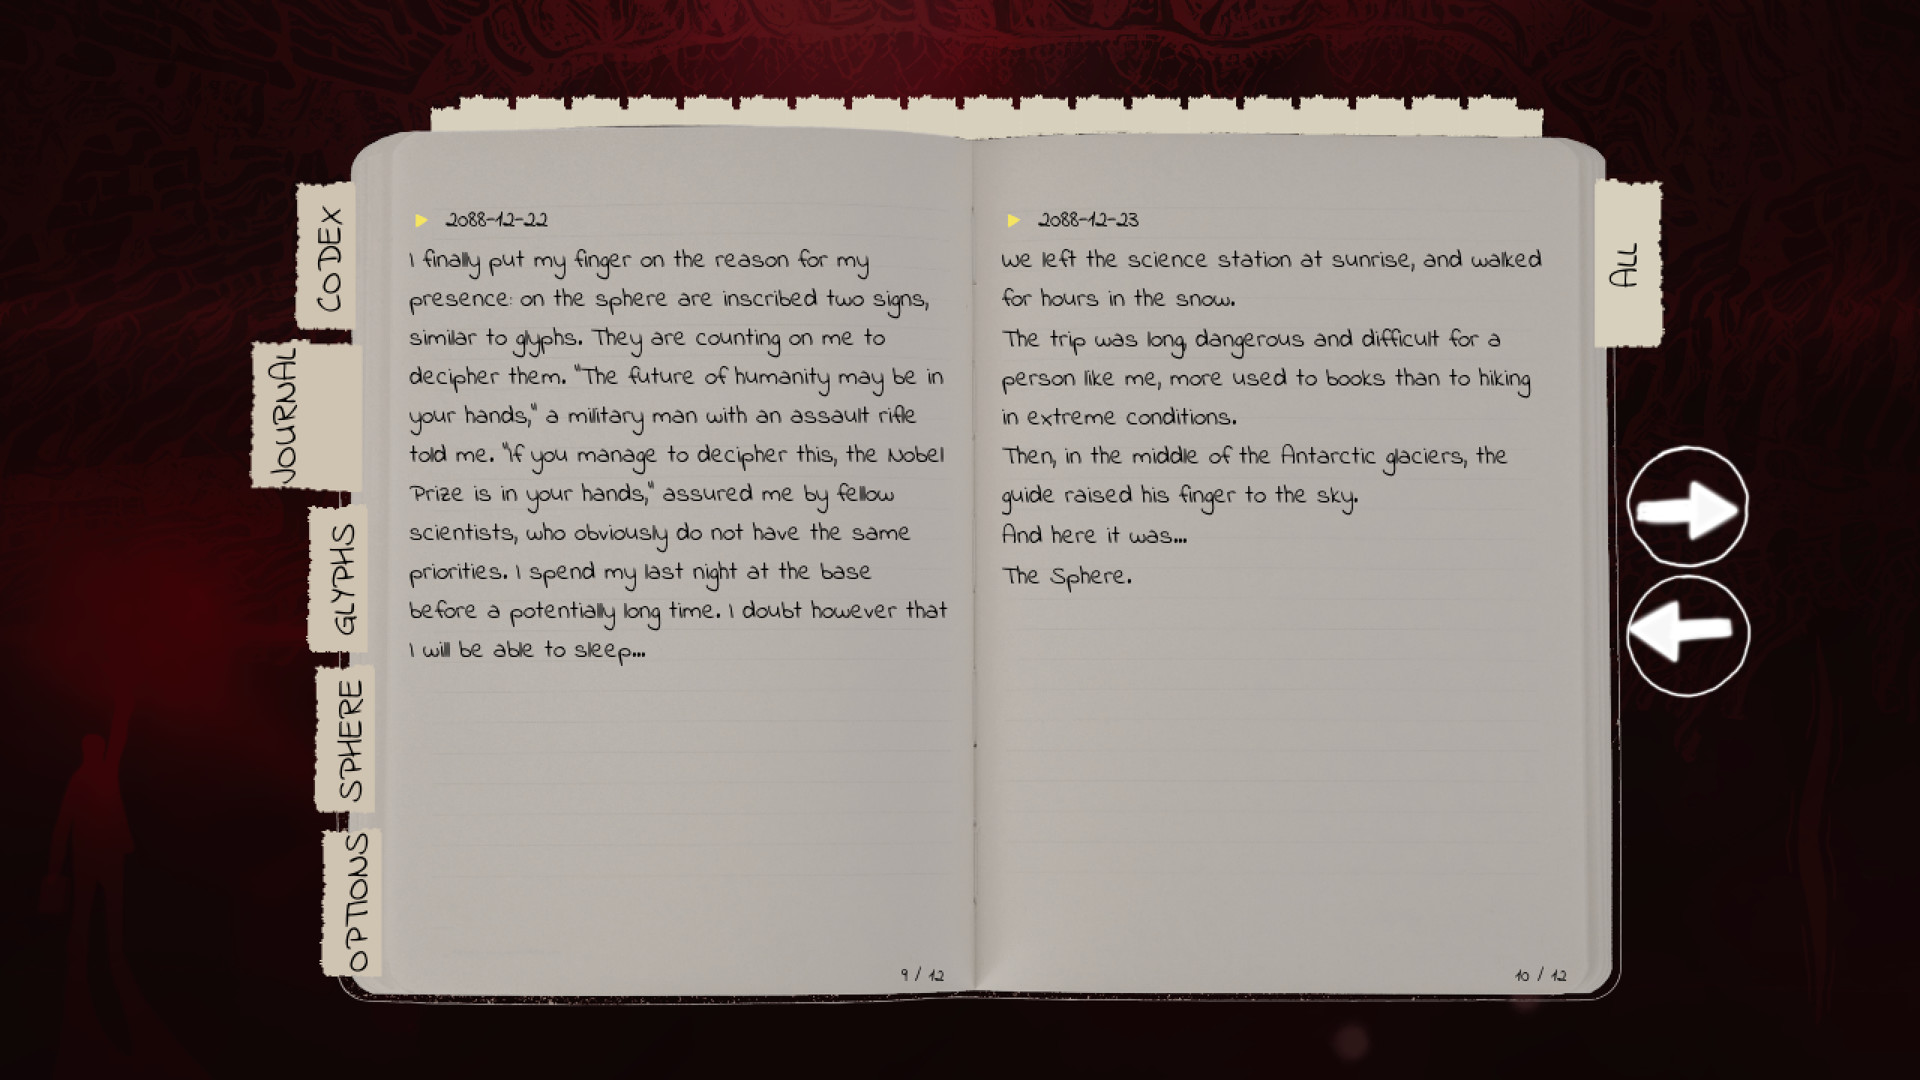 CODEX
JOURNAL
GLYPHS
SPHERE
OPTIONS
2088-12-22
I finally put my finger on the reason for my
presence: on the sphere are inscribed two signs,
similar to glyphs. They are counting on me to
decipher them. "The future of humanity may be in
your hands," a military man with an assault rifle
told me. "If you manage to decipher this, the Nobel
Prize is in your hands," assured me by fellow
scientists, who obviously do not have the same
priorities. I spend my last night at the base
before a potentially long time. I doubt however that
I will be able to sleep...
9 / 12
2088-12-23
We left the science station at sunrise, and walked
for hours in the snow.
The trip was long, dangerous and difficult for a
person like me, more used to books than to hiking
in extreme conditions.
Then, in the middle of the Antarctic glaciers, the
guide raised his finger to the sky.
And here it was...
The Sphere.
10 / 12
ALL